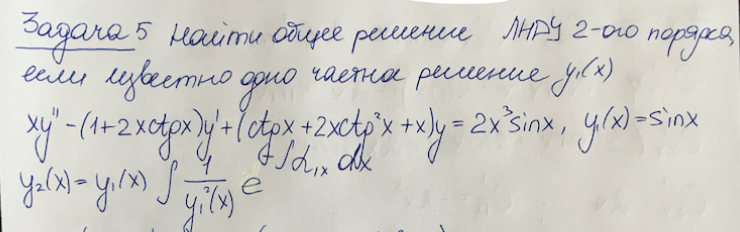 Задача 5 Найти общее решение ЛНДУ 2-ого порядка,
если известно одно частна решение y₁(x)
xy'' - (1+2xctgx)y' + (ctgx + 2xctg²x + x)y = 2x³sinx, y₁(x) = sinx
y₂(x) = y₁(x) ∫ 1/y₁²(x) e^(+∫α₁ₓ dx)